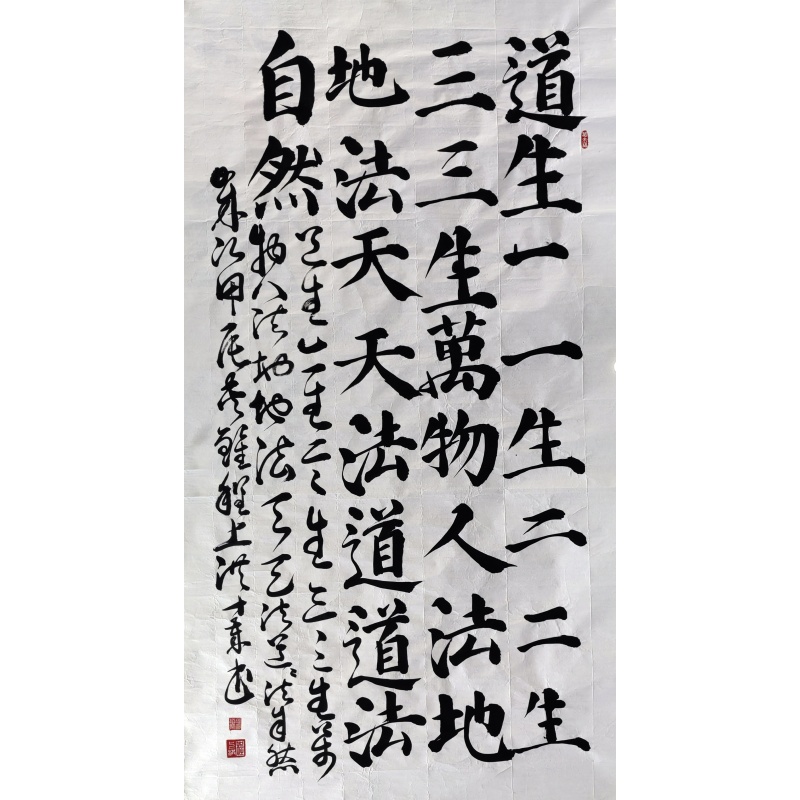 道生一一生二二生
三三生萬物人法地
地法天天法道道法
自然
道生一一生二二生三三生萬
物人法地地法天天法道道法自然
歲次甲辰
上洪
書